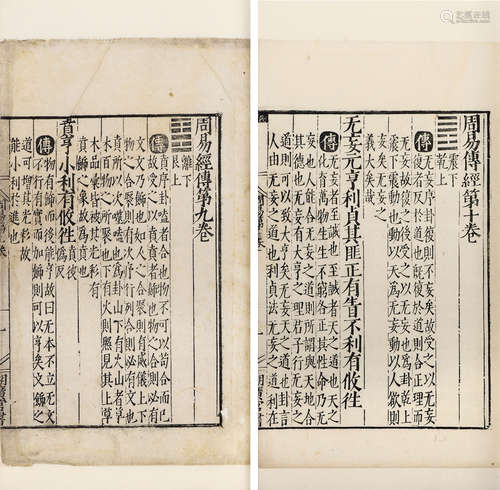 周易經傳第九卷
離下
艮上
傳
賁序卦嗑者合也物不可以苟合而已
故受之以賁賁者飾也物之合則必有
文文乃飾也如人之合聚則有威儀上下
物之合聚則有次序行列合則必有文也
賁所以次噬嗑也為卦山下有火山者草
木百物之所聚也下有火則照見其上草
木品彙皆被其光彩有
賁飾之象故為賁也
賁亨小利有攸往
賁彼
為反
傳
物有飾而後能亨故曰无本不立无文
不行有實而加飾則可以亨矣文飾之
道可增其光彩故
能小利於進也
周易傳經第十卷
震下
乾上
傳
无妄序卦復則不妄矣故受之以无妄
復者反於道也既復於道則合正理而
无妄故復之後受之以无妄也為卦乾上
震下震動也動以天為无妄動以人欲則
妄矣无妄之
義大矣哉
无妄元亨利貞其匪正有眚不利有攸往
傳
无妄者至誠也至誠者天之道也天之
化育萬物生生不窮各正其性命乃无
妄也人能合无妄之道則所謂與天地合
其德也无妄有大亨之理君子行无妄之
道則可以致大亨矣无妄天之道也卦言
人由无妄之道也利貞法无妄之道利在